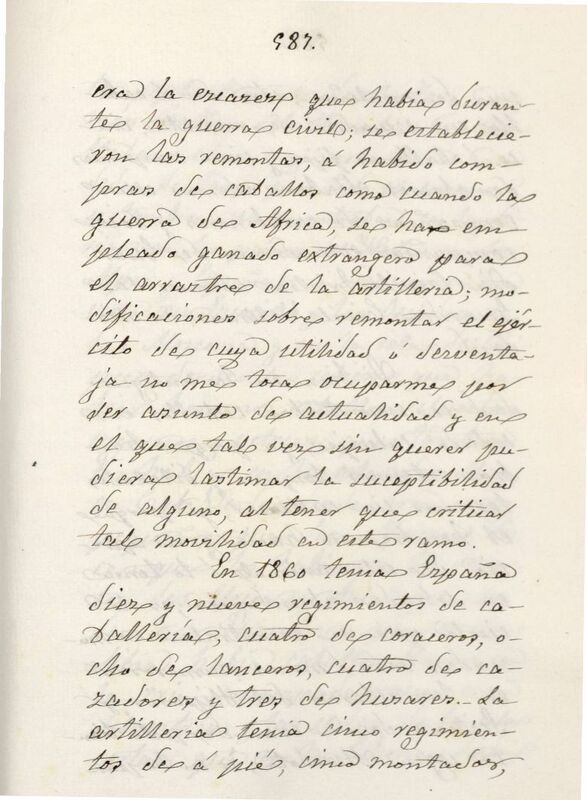 987.
era la escasez que habia duran-
te la guerra civil; se establecie-
ron las remontas, á habido com-
pras de caballos como cuando la
guerra de Africa, se ha em
pleado ganado extrangero para
el arrastre de la artilleria; mo-
dificaciones sobre remontar el ejér-
cito de cuya utilidad ó desventa-
ja no me toca ocuparme por
ser asunto de actualidad y en
el que tal vez sin querer pu-
diera lastimar la suceptibilidad
de alguno, al tener que criticar
tal movilidad en este ramo.
En 1860 tenia España
diez y nueve regimientos de ca-
ballería, cuatro de coraceros, o-
cho de lanceros, cuatro de ca-
zadores y tres de husares.- La
artilleria tenia cinco regimien-
tos de á pié, cinco montados,